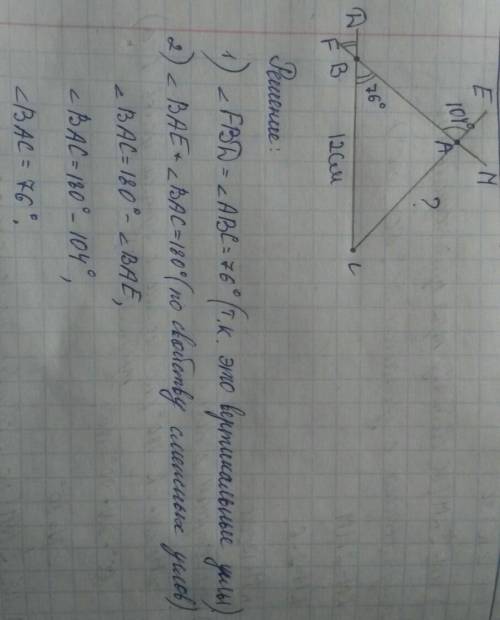 E
M
104°
A
?
D
F
B
76°
12см
C
Решение:
1) ∠FBD = ∠ABC = 76° (т.к. это вертикальные углы)
2) ∠BAE + ∠BAC = 180° (по свойству смежных углов)
∠BAC = 180° - ∠BAE,
∠BAC = 180° - 104°,
∠BAC = 76°.